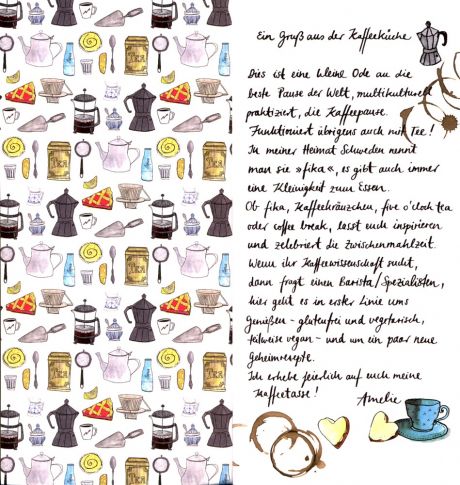 Ein Gruß aus der Kaffeeküche
Dies ist eine kleine Ode an die
beste Pause der Welt, multikulturell
praktiziert, die Kaffeepause.
Funktioniert übrigens auch mit Tee!
In meiner Heimat Schweden nennt
man sie »fika«, es gibt auch immer
eine Kleinigkeit zum Essen.
Ob fika, Kaffeekränzchen, five o'clock tea
oder coffee break, lasst euch inspirieren
und zelebriert die Zwischenmahlzeit.
Wenn ihr Kaffeewissenschaft sucht,
dann fragt einen Barista/Spezialisten,
hier geht es in erster Linie ums
Genießen - glutenfrei und vegetarisch,
teilweise vegan - und um ein paar neue
Geheimrezepte.
Ich erhebe feierlich auf euch meine
Kaffeetasse!
Amelie
TEA
TEA
TEA
TEA